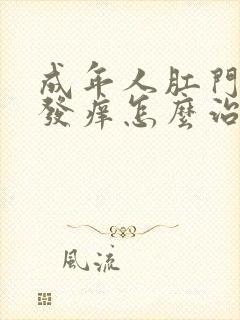 成年人肛門
發痒怎麼治
風流